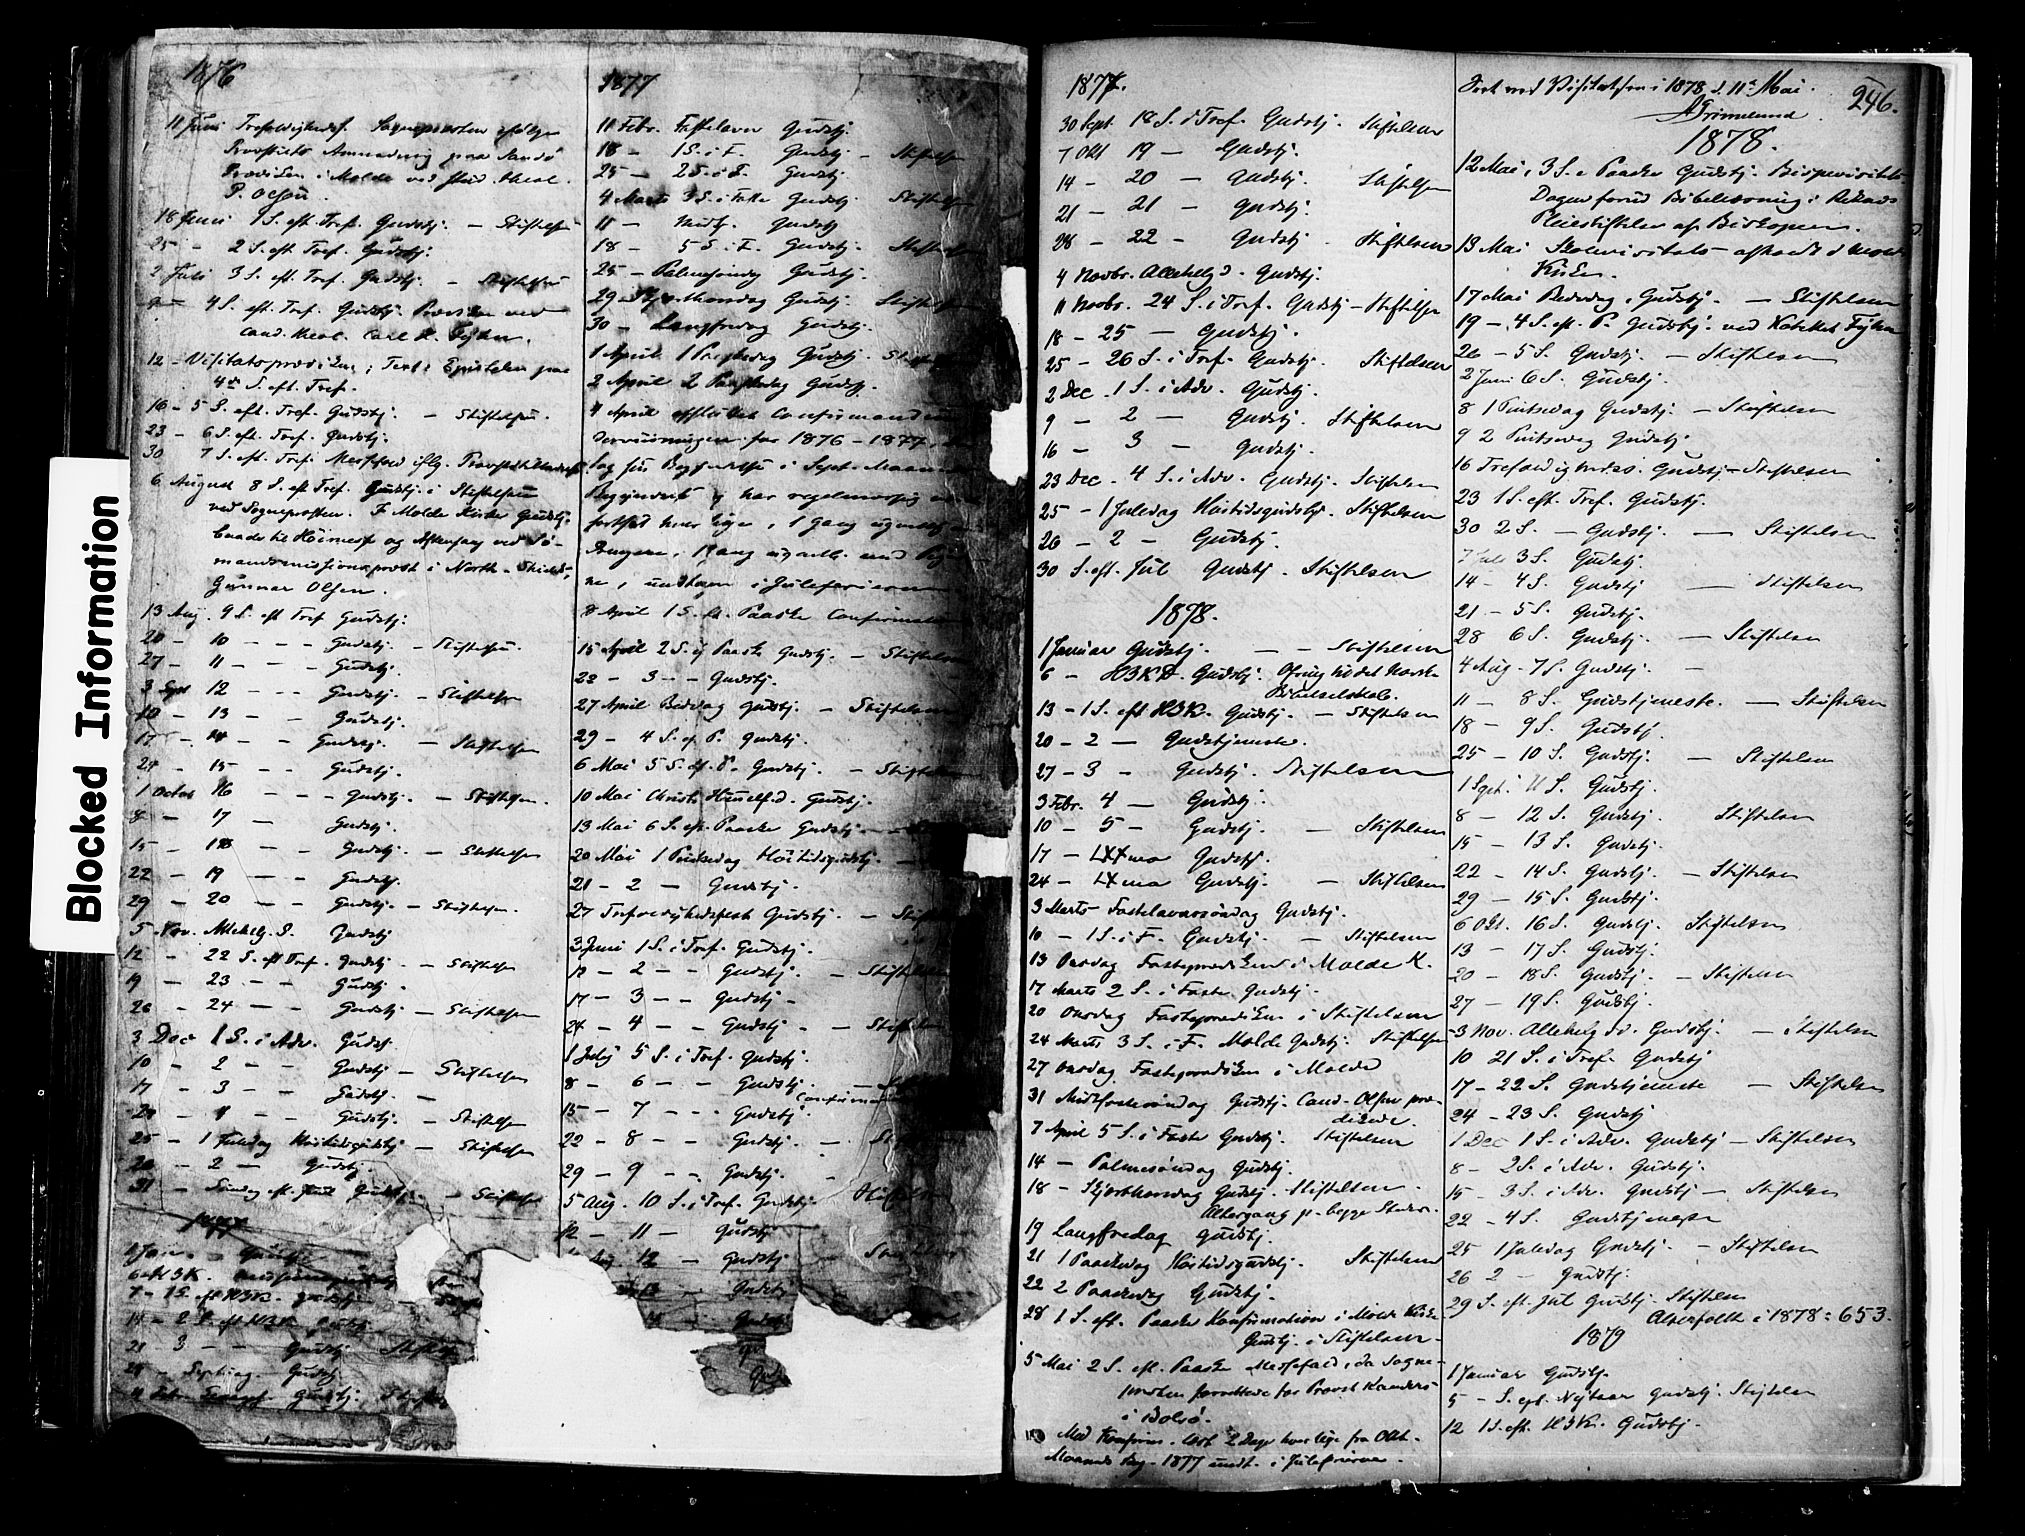 Blocked Information
1876
11 Juni Trefoldighedsf. Sognepresten ifølge
Provstiets Anmodning paa Sandø
Prædiken i Molde ved stud. theol.
P. Olsen.
18 Juni 1 S. eft. Tref. Gudstj. — Stiftelsen
25 - 2 S. eft. Tref. Gudstj.
2 Juli 3 S. eft. Tref. Gudstj. — Stiftelsen
4 S. eft. Tref. Gudstj. Prædiken ved
Cand. theol. Carl
12 - Visitatsprædiken; Text: Epistelen paa
4de S. eft. Tref.
16 - 5 S. eft. Tref. Gudstj. — Stiftelsen.
23 - 6 S. eft. Tref. Gudstj.
30 7 S. eft. Tref. Messefald iflg.
6 August 8 S. eft Tref. Gudstj. i Stiftelsen
ved Sognepresten. I Molde Kirke Gudstj.
baade til Høimesse og Aftensang ved Sø-
mandsmissionsprest i North-Shields,
Gunnar Olsen.
13 Aug. 9 S. eft Tref Gudstj.
20 - 10 - - Gudstj. - Stiftelsen.
27 - 11 - - Gudstj.
3 Sept 12 - - Gudstj. - Stiftelsen
10 - 13 - - Gudstj.
17 - 14 - - Gudstj. - Stiftelsen
24 - 15 - - Gudstj.
1 Octob 16 - - Gudstj. - Stiftelsen.
8 - 17 - Gudstj.
15 - 18 - - Gudstj. - Stiftelsen
22 - 19 - - Gudstj.
29 - 20 - - Gudstj. - Stiftelsen.
5 Nov. Allehelg. D. Gudstj
12 - 22 S. eft Tref. Gudstj. - Stiftelsen
19 - 23 - - Gudstj.
26 - 24 - - Gudstj - Stiftelsen
3 Dec 1 S. i Adv. Gudstj.
10 - 2 - - Gudstj - Stiftelsen
17 - 3 - - Gudstj. -
24 - 4 - - Gudstj. - Stiftelsen
25 - 1 Juledag Høitidsgudstj - Stiftelsen
26 - 2 - Gudstj.
31 - Søndag eft. Jul Gudstj. - Stiftelsen
1877
1 Jan. - Gudstj.
6 H3K.
7 - 1 S. eft H3K. Gudstj.
14 - 2 S. eft H3K Gudstj
21 - 3 - - Gudstj
28 - Septuag. Gudstj.
4 Febr. Gudstj.
1877
11 Febr. Fastelavn Gudstj.
18 - 1 S. i F. Gudstj - Stiftelsen
25 - 2 S. i F. Gudstj.
4 Marts 3 S. i Faste Gudstj. Stiftelsen
11 - Midtf. Gudstj
18 - 5 S. i F. Gudstj. - Stiftelsen
25 - Palmesøndag Gudstj.
29 - Skjærthorsdag Gudstj. Stiftelsen
30 - Langfredag Gudstj.
1 April 1 Paaskedag Gudstj. Stiftelsen
2 April 2 Paaskedag Gudstj.
4 April afsluttet Confirmand
for 1876-1877,
i Sept. Maaned
Begyndt
1 Gang ugentlig
ne, undtagen i Juleferierne
8 April 1 S. eft. Paaske Confirmation
15 April 2 S. ef Paaske Gudstj. - Stiftelsen
22 - 3 - - Gudstj.
27 April Bededag Gudstj. - Stiftelsen
29 - 4 S. ef P. Gudstj.
6 Mai 5 S. ef. P. Gudstj. - Stiftelsen
10 Mai Christi Himelf. d. Gudstj.
13 Mai 6 S. eft. Paaske Gudstj. -
20 Mai 1 Pintsedag Høitidsgudstj. -
21 - 2 - Gudstj.
27 Trefoldighedsfest Gudstj. - Stiftelsen
3 Juni 1 S. i Tref. Gudstj.
10 - 2 - - Gudstj - Stiftelsen
17 - 3 - - Gudstj -
24 - 4 - - Gudstj. - Stiftelsen
1 July 5 S. i Tref. Gudstj.
8 - 6 - - Gudstj. -
15 - 7 - - Gudstj.
22 - 8 - - Gudstj. - St
29 - 9 - - Gudstj. -
5 Aug. 10 S. i Tref. Gudstj. Stiftelsen
12 - 11 - Gudstj
12 - Gudstj - Stiftelsen
13 - Gudstj
14 Gudstj
1877.
30 Sept. 18 S. i Tref. Gudstj. Stiftelsen
7 Okt 19 - Gudstj.
14 - 20 - Gudstj. Stiftelsen
21 - 21 - Gudstj.
28 - 22 - Gudstj. Stiftelsen
4 Novbr. Allehelg d. Gudstj.
11 Novbr. 24 S. i Tref. Gudstj - Stiftelsen
18 - 25 - Gudstj.
25 - 26 S. i Tref. Gudstj. Stiftelsen
2 Dec. 1 S. i Adv. Gudstj.
9 - 2 - Gudstj. Stiftelsen
16 - 3 - Gudstj.
23 Dec. 4 S. i Adv. Gudstj. Stiftelsen
25 - 1 Juledag Høitidsgudstj. Stiftelsen
26 - 2 - Gudstj.
30 S. eft. Jul Gudstj. Stiftelsen
1878.
1 Januar Gudstj. - - Stiftelsen
6 - H3KD. Gudstj. Ofring til det Norske
Bibelselskab.
13 - 1 S. eft H3K. Gudstj. - Stiftelsen
20 - 2 - Gudstjeneste.
27 - 3 - Gudstj. Stiftelsen
3 Febr. 4 - Gudstj.
10 - 5 - Gudstj. - Stiftelsen
17 - LXXma Gudstj.
24 - LXma Gudstj. - Stiftelsen
3 Marts - Fastelavnssøndag Gudstj.
10 - 1 S. i F. Gudstj. - Stiftelsen
13 Onsdag Fasteprædiken i Molde K.
17 Marts 2 S. i Faste Gudstj.
20 Onsdag Fasteprædiken i Stiftelsen
24 Marts 3 S. i F. Molde Gudstj. Stiftelsen
27 Onsdag Fasteprædiken i Molde
31 Midtfastesøndag Gudstj. Cand. Olsen præ-
dikede.
7 April 5 S. i Faste Gudstj. Stiftelsen
14 - Palmesøndag Gudstj.
18 - Skjærthorsdag Gudstj. Stiftelsen.
Altergang p. begge Steder.
19 Langfredag Gudstj.
21 1 Paaskedag Høitidsgudstj. Stiftelsen
22 2 Paaskedag Gudstj.
28 1 S. eft. Paaske Konfirmation i Molde Kirke
Gudstj. i Stiftelsen.
5 Mai 2 S. eft. Paaske Messefald, da Sogne-
presten forrettede for Provst Kaurdes
i Bolsø.
Med Konfirm. læst 2 Dage hver Uge fra Okt.
Maaneds Beg. 1877 undt. i Juleferierne.
Fort ved Visitatsen i 1878 d. 11te Mai.
A Grimelund 246.
1878.
12 Mai, 3 S. e Paaske Gudstj. Bispevisitats
Dagen forud Bibellæsning i Reknæs
Pleiestiftelse af Biskopen.
13 Mai Skolevisitats afholdt i Molde
Kirke.
17 Mai Bededag, Gudstj. — Stiftelsen
19 - 4 S. ef. P. Gudstj. ved Kateket
26 - 5 S. Gudstj. — Stiftelsen
2 Juni 6 S. Gudstj.
8 1 Pintsedag Gudstj. — Stiftelsen
9 2 Pintsedag Gudstj.
16 Trefoldighedss. Gudstj - Stiftelsen
23 1 S. eft. Tref. Gudstj.
30 2 S. — Gudstj. — Stiftelsen
7 Juli 3 S. Gudstj.
14 - 4 S. Gudstj — Stiftelsen
21 - 5 S. Gudstj.
28 6 S. Gudstj. — Stiftelsen
4 Aug. 7 S. Gudstj. —
11 - 8 S. Gudstjeneste. — Stiftelsen
18 - 9 S. Gudstj.
25 - 10 S. Gudstj. — Stiftelsen
1 Sept. 11 S. Gudstj.
8 - 12 S. Gudstj. Stiftelsen
15 - 13 S. Gudstj.
22 - 14 S. Gudstj. — Stiftelsen
29 - 15 S. Gudstj.
6 Okt. 16 S. Gudstj. Stiftelsen
13 - 17 S. Gudstj.
20 - 18 S. Gudstj. — Stiftelsen
27 - 19 S. Gudstj.
3 Nov. Allehelg. d. Gudstj. — Stiftelsen
10 21 S. i Tref. Gudstj
17 - 22 S. Gudstjeneste — Stiftelsen
24 - 23 S. Gudstj
1 Dec 1 S. i Adv. Gudstj — Stiftelsen
8 - 2 S. i Adv. Gudstj.
15 - 3 S. i Adv. Gudstj — Stiftelsen
22 - 4 S. Gudstjeneste
25 1 Juledag Gudstj. — Stiftelsen
26 2 - Gudstj.
29 S. eft. Jul Gudstj. Stiftelsen
Alterfolk i 1878: 653.
1879
1 Januar Gudstj.
5 - S. eft. Nytaar Gudstj. Stiftelsen
12 1 S. eft. H3K. Gudstj.